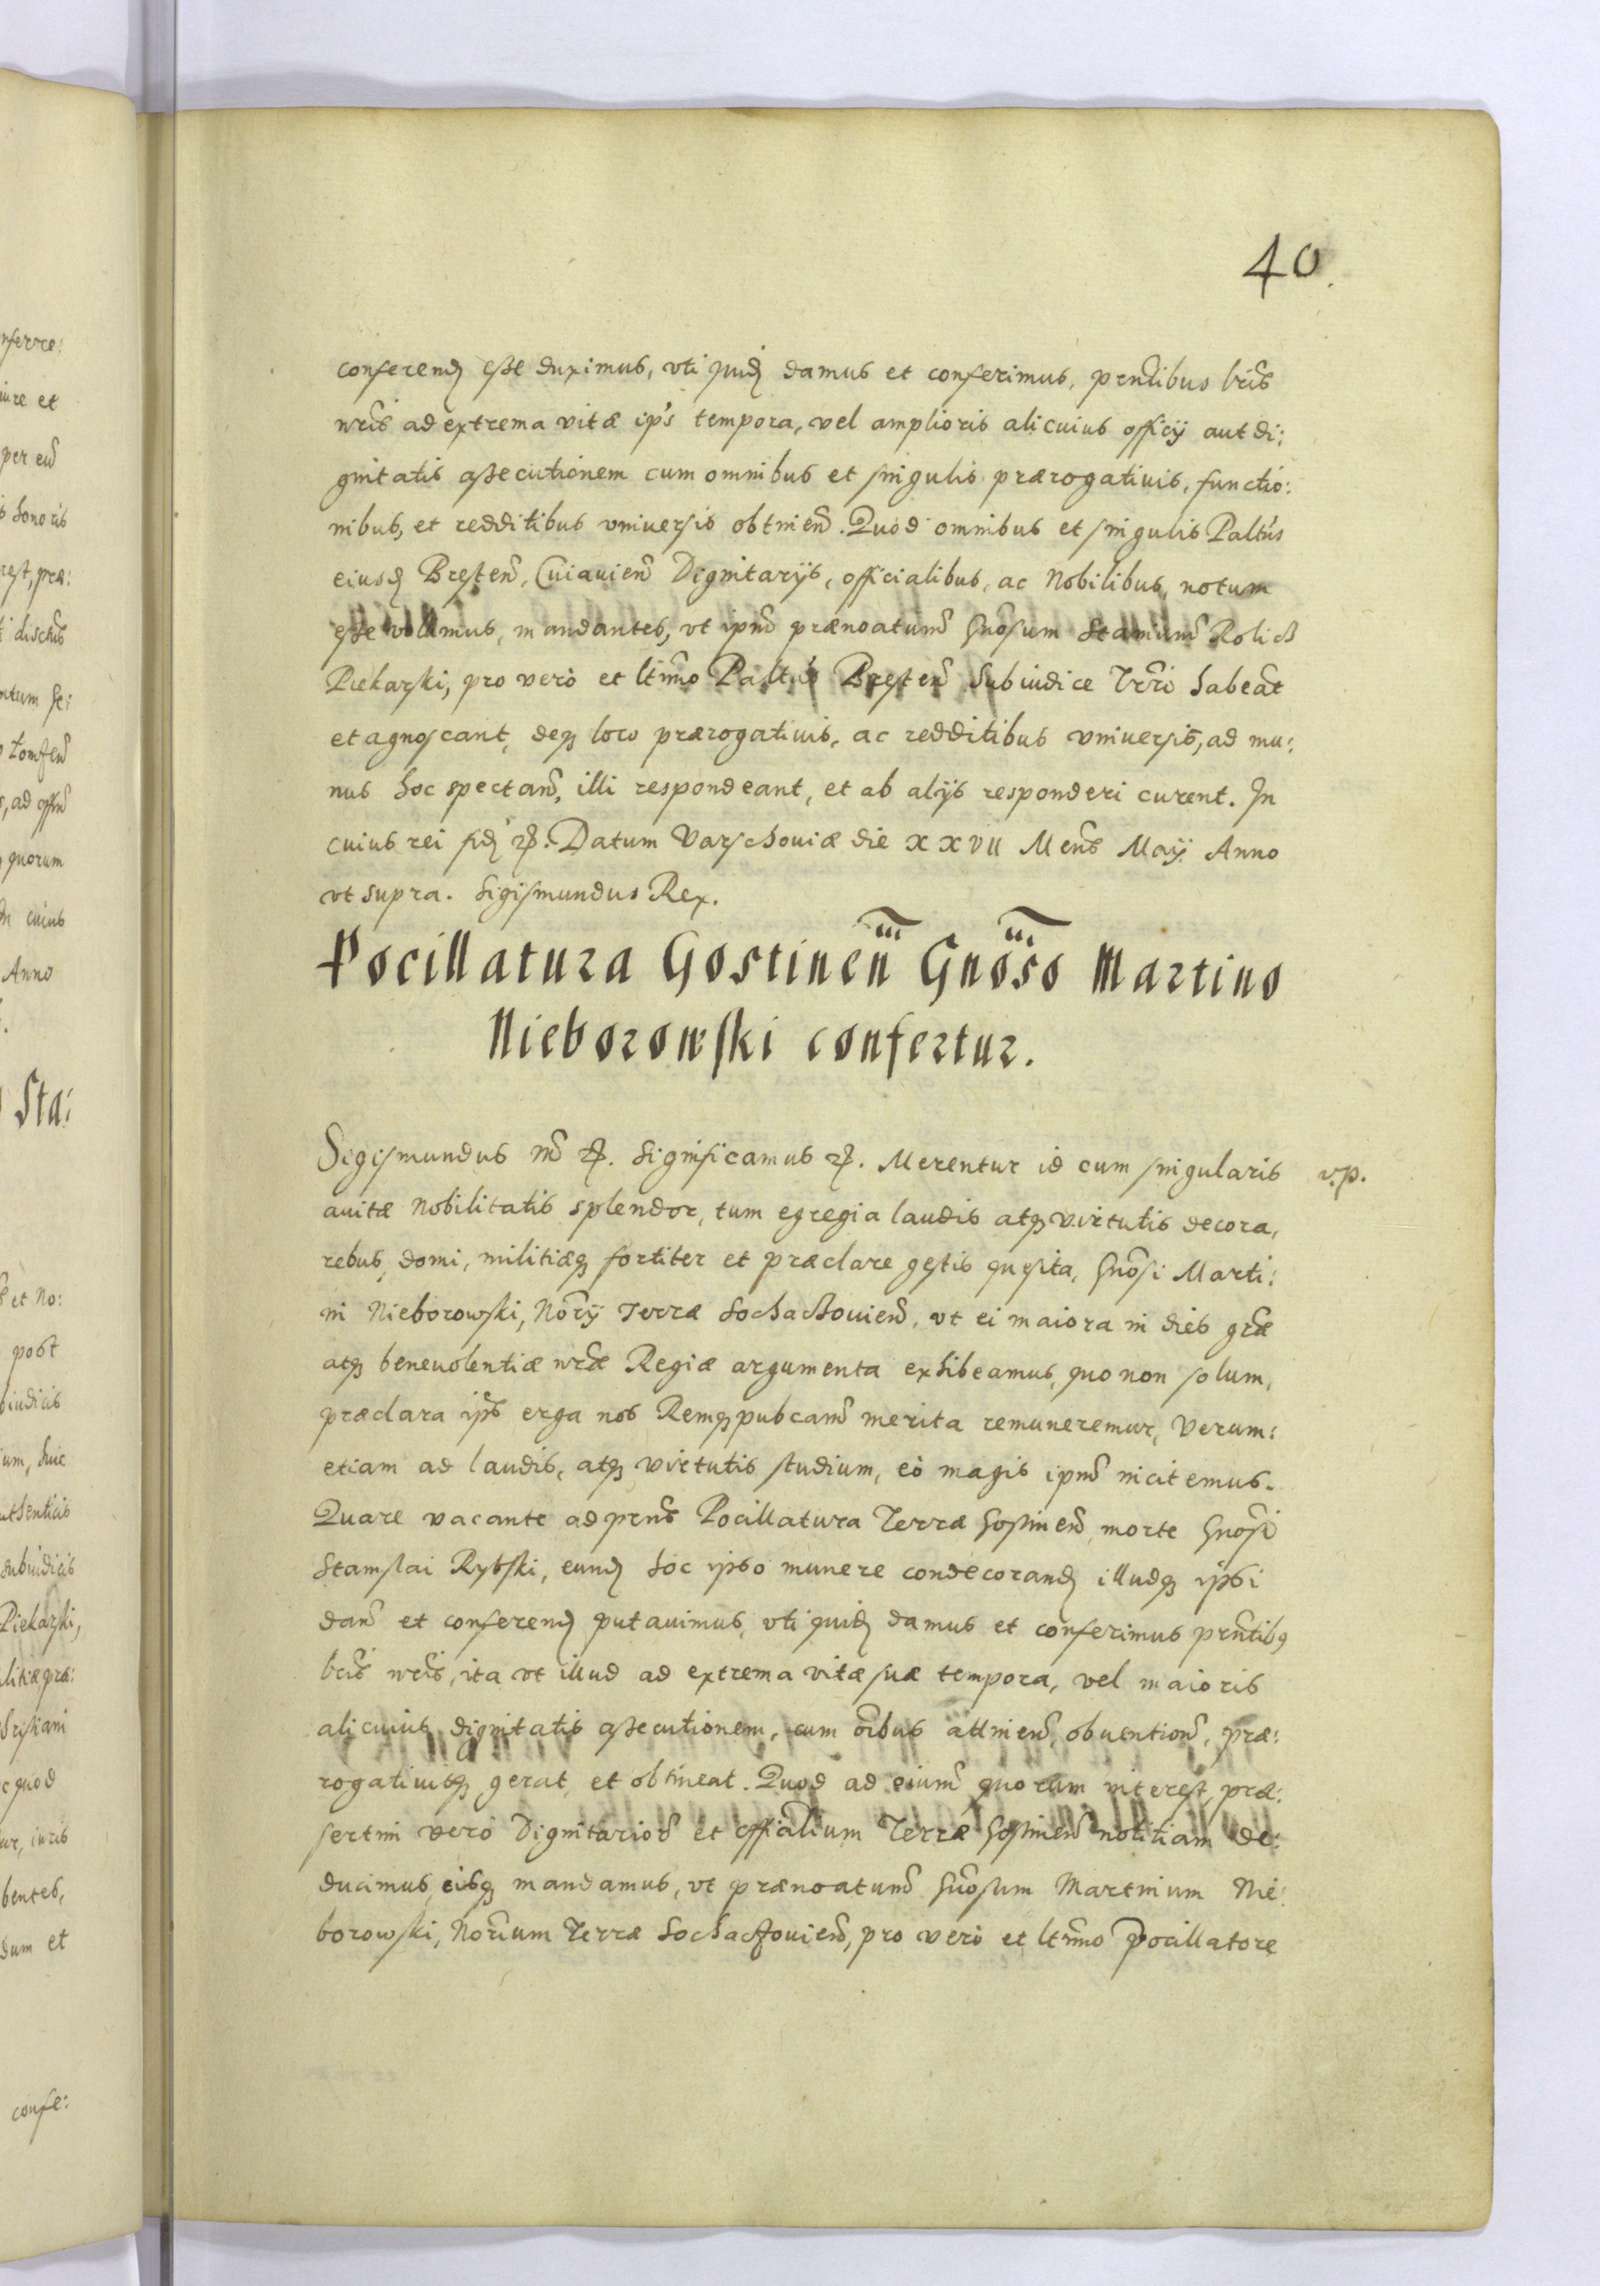 40.
conferend esse duximus, vti quid damus et conferimus, prntibus lris
nris ad extrema vitæ ips tempora, vel amplioris alicuius officij aut di:
gnitatis assecutionem cum omnibus et singulis prærogatiuis, functio:
nibus, et redditibus vniuersis obtinen. Quod omnibus et singulis Paltus
eiusd Bresten, Cuiauien Dignitarijs, officialibus, ac Nobilibus, notum
esse volumus, mandantes, vt ipm prænoatum Gnosum Stanium Rolicz
Piekarski, pro vero et ltimo Paltus Bresten Subiudice Trri habeat
et agnoscant, deq loco prærogatiuis, ac redditibus vniuersis, ad mu:
nus hoc spectan, illi respondeant, et ab alijs responderi curent. In
cuius rei fid etc. Datum Varschouiæ die XXVII Mens Maij Anno
vt supra. Sigismundus Rex.
Pocillatura Gostinen Gnoso Martino
Nieborowski confertur.
Sigismundus 3us etc. Significamus etc. Merentur id cum singularis
v.p.
auitæ Nobilitatis splendor, tum egregia laudis atq virtutis decora,
rebus, domi, militiæq fortiter et præclare gestis quesita, Gnosi Marti:
ni Nieborowski, Norij Terræ Sochaczouien, vt ei maiora in dies græ
atq beneuolentiæ nræ Regiæ argumenta exhibeamus, quo non solum,
præclara ips erga nos Remq pubcam merita remuneremur, Verum:
etiam ad laudis, atq virtutis studium, eò magis ipm incitemus.
Quare vacante ad prns Pocillatura Terræ Gostinen morte Gnosi
Stanislai Rybski, eund hoc ipso munere condecorand illudq ipsi
dan et conferend putauimus, vti quid damus et conferimus prntibq
lris nris, ita vt illud ad extrema vitæ suæ tempora, vel maioris
alicuius dignitatis assecutionem, cum oibus attinen, obuention, præ:
rogatiuisq gerat, et obtineat. Quod ad eium quorum interest, præ:
sertim verò Dignitarior et officialium Terræ Gostinen notitiam de:
ducimus, eisq mandamus, vt prænoatum Gnosum Martinum Nie:
borowski, Norium Terræ Sochaczouien, pro vero et ltimo Pocillatore